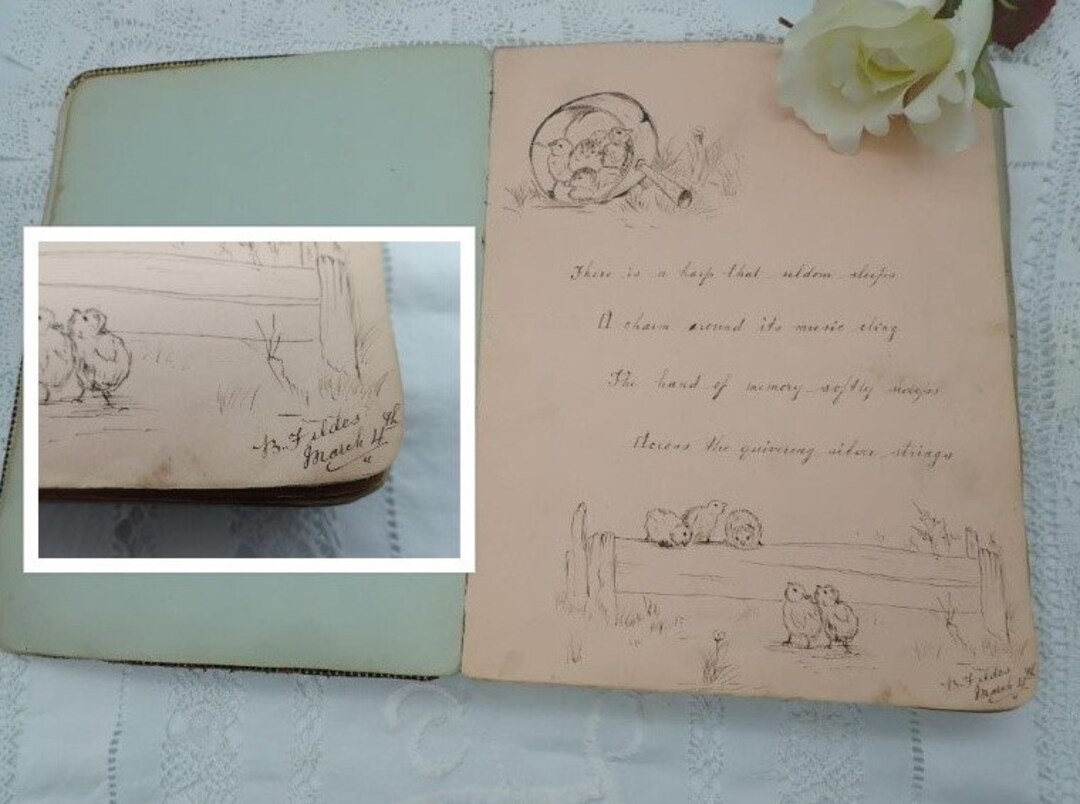 There is a harp that seldom sleeps
A charm around its music cling
The hand of memory softly sweeps
Across the quivering silver strings
B. Fildes
March 4th
B. Fildes
March 4th